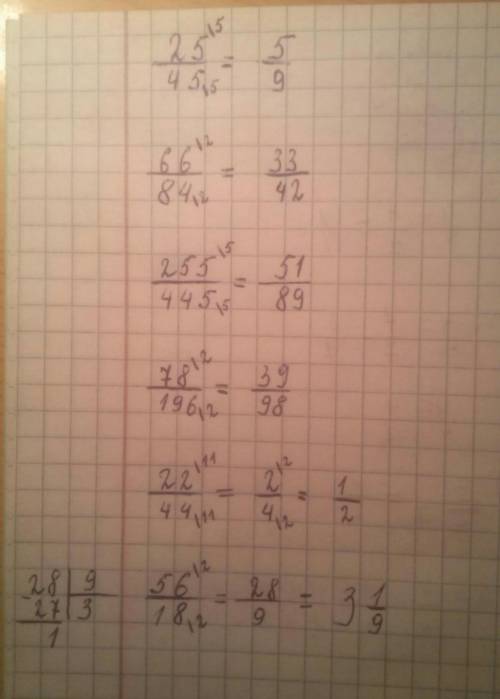 25\5 / 45\5 = 5/9
66\2 / 84\2 = 33/42
255\5 / 445\5 = 51/89
78\2 / 196\2 = 39/98
22\11 / 44\11 = 2\2 / 4\2 = 1/2
28 | 9
27 | 3
1
56\2 / 18\2 = 28/9 = 3 1/9